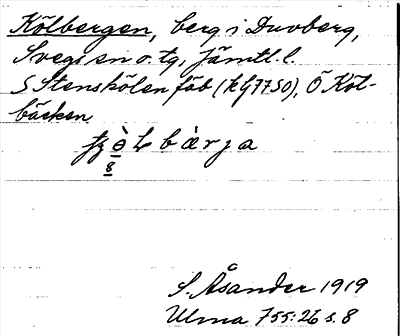 Kölbergen, berg i Duvberg,
Svegs sn o. tg, Jämtl. l.
S Stenskölen fäb (kfj7750), Ö Köl-
bäcken
bärja
S. Åsander 1919
Ulma 755:26 s. 8